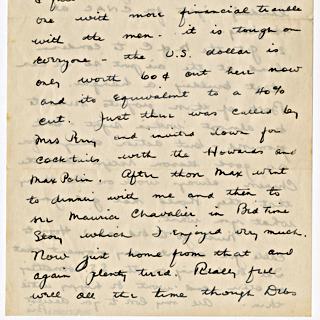 one with more financial trouble
with the men. it is tough on
everyone - the U.S. dollar is
only worth 60¢ out here now
and its equivalent to a 40%
cut. Just then was called by
Mrs and invited down for
cocktails with the Howards and
Max Polin. After thon Max went
to dinner with me and then to
see Maurice Chavalier in Bedtime
Story which I enjoyed very much.
Now just home from that and
again plenty tired. Really feel
well all the time though Dubs